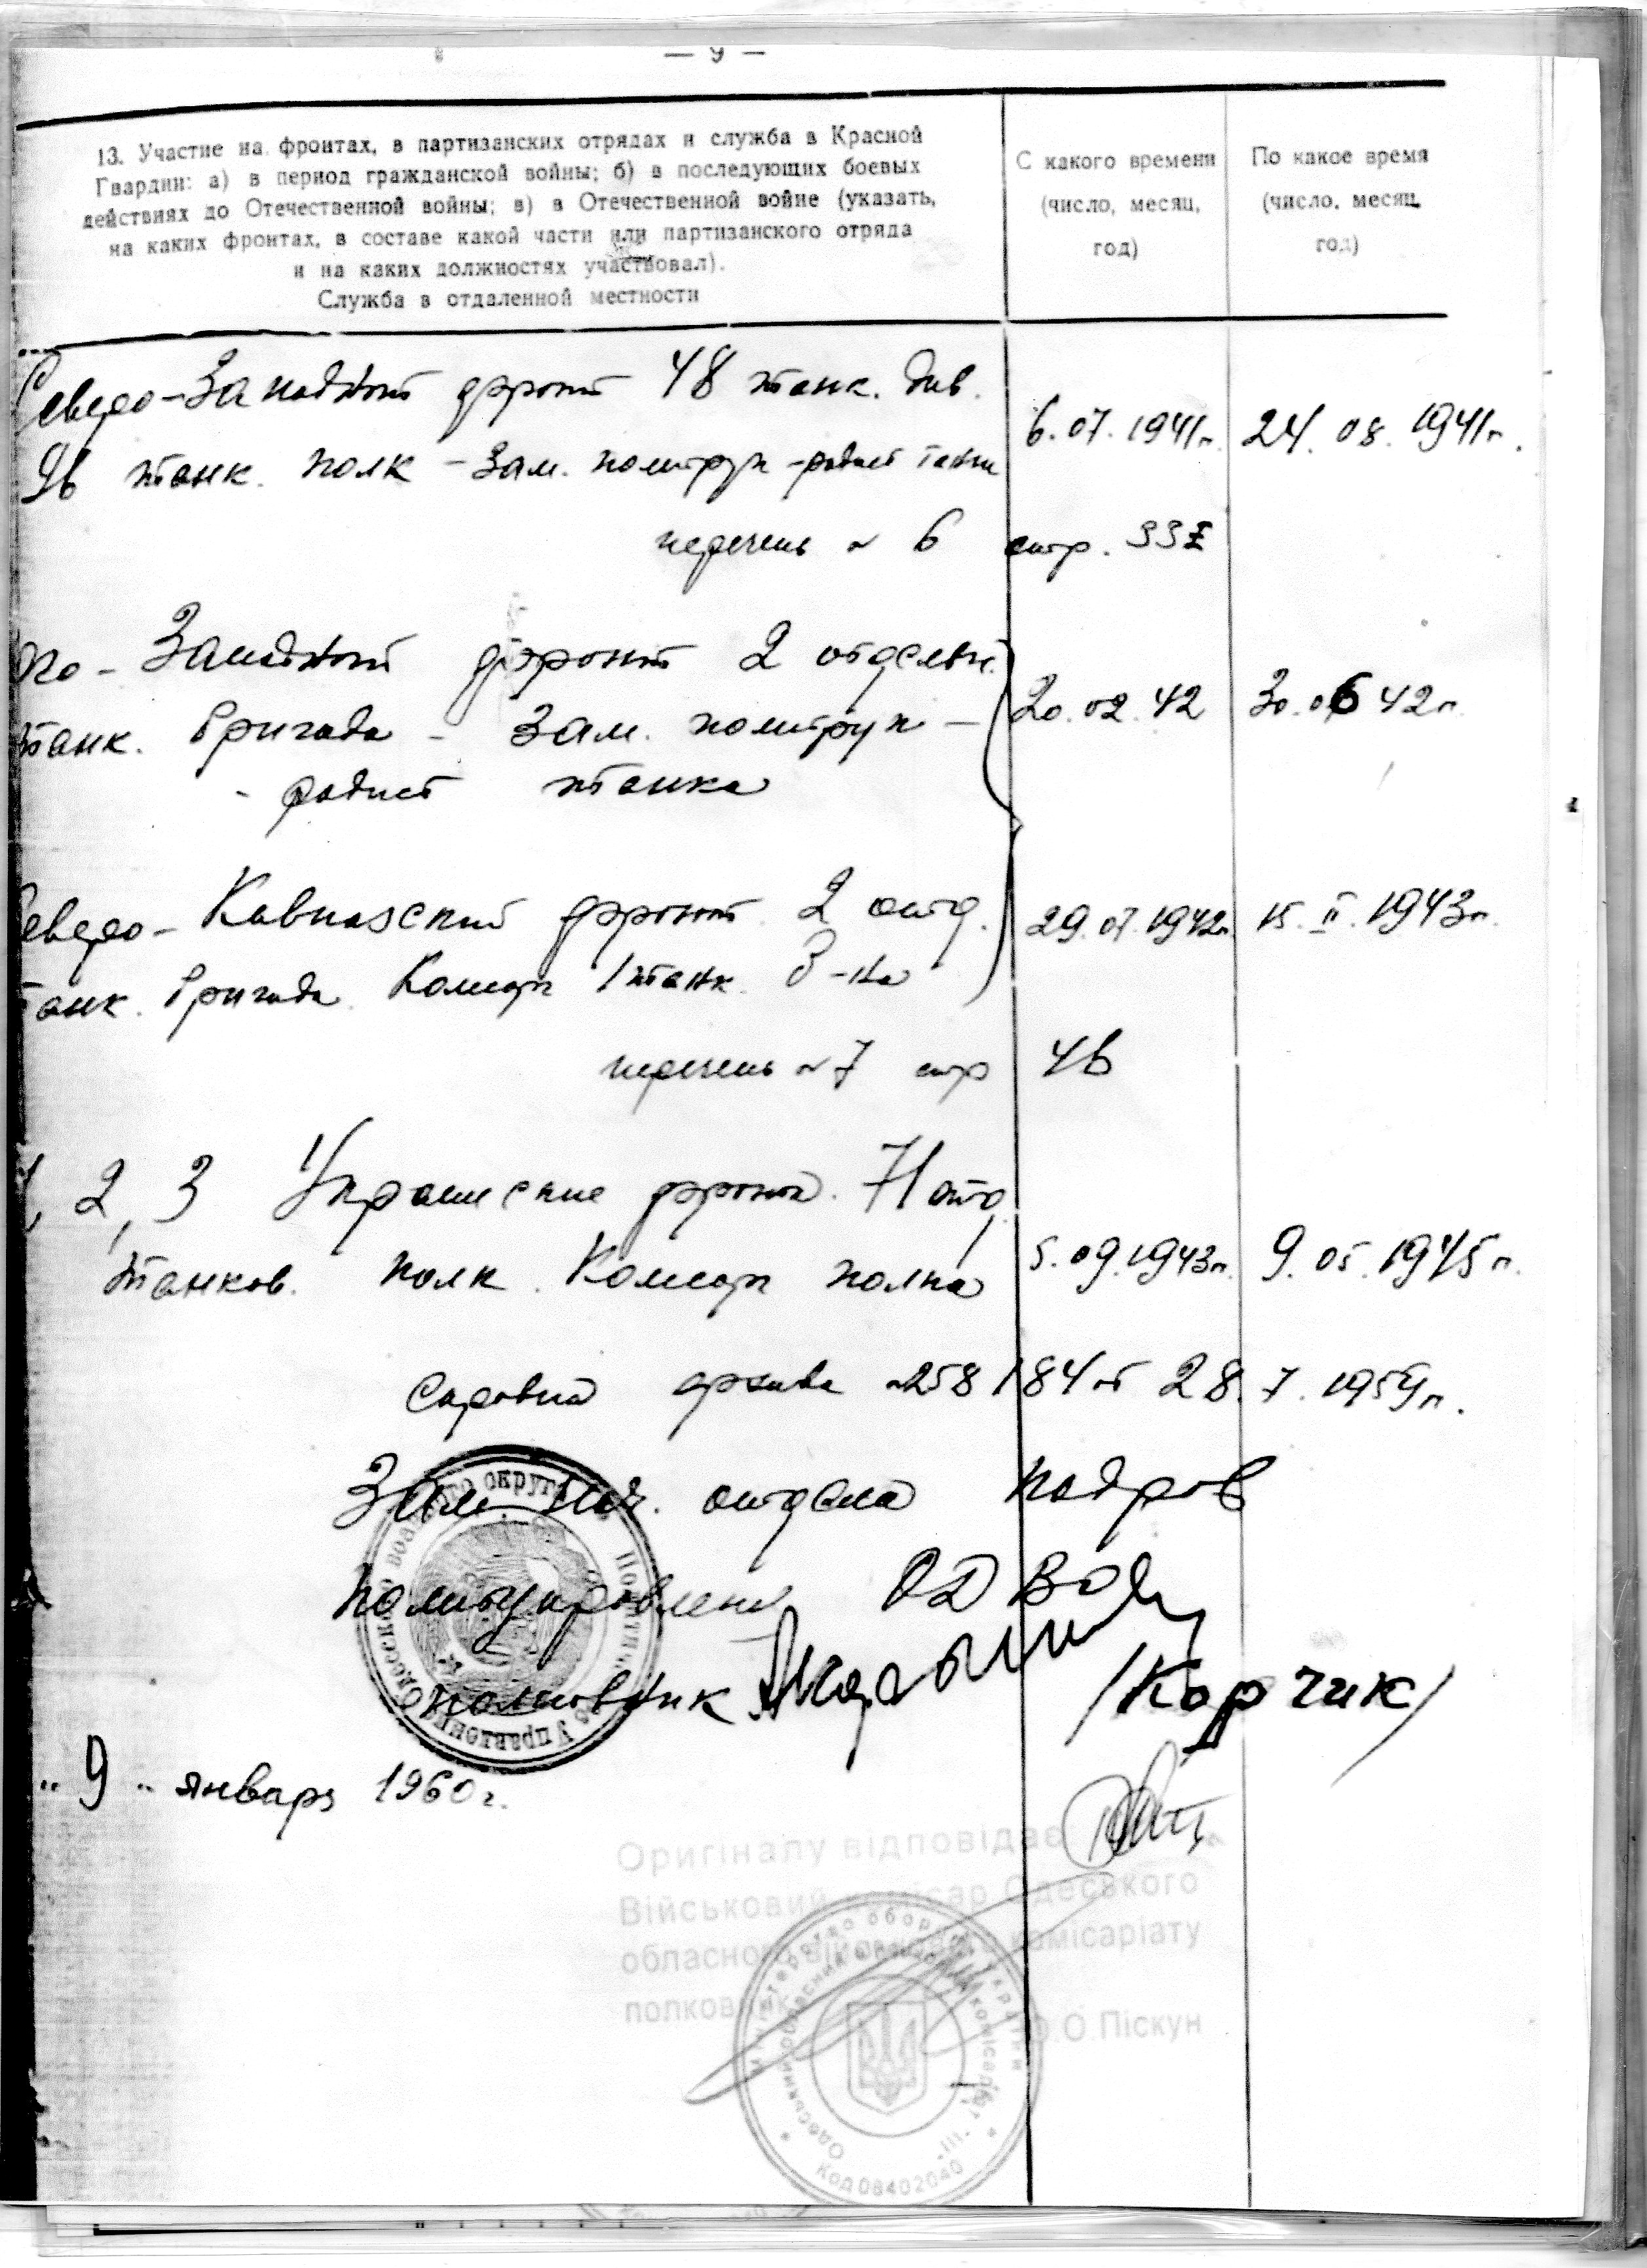 — 9 —
13. Участие на фронтах, в партизанских отрядах и служба в Красной
Гвардии: а) в период гражданской войны; б) в последующих боевых
действиях до Отечественной войны; в) в Отечественной войне (указать,
на каких фронтах, в составе какой части или партизанского отряда
и на каких должностях участвовал).
Служба в отдаленной местности
С какого времени
(число, месяц,
год)
По какое время
(число, месяц
год)
Северо-Западный фронт 48 танк. див.
96 танк. полк - Зам. политрук - радист танка
6.07.1941г. 24.08.1941г.
перечень № 6 стр. 33
Западный фронт 2 отдельн.
танк. бригада - Зам. политрук -
- радист танка
20.02.42 30.06 42г.
еверо-Кавказский фронт 2 отд.
танк. бригада. Комиссар 1 танк. б-на
29.07.1942г. 15.II.1943г.
перечень № 7 стр 46
1, 2, 3 Украинские фронта. 71 отд
танков. полк. полка
5.09.1943г. 9.05.1945г.
Справка архива №258184 от 28.7.1959г.
Зам. нач. отдела кадров
Политуправления ОДВО
полковник /Карчик/
"9" январь 1960г.
Одесского военного округа
Оригіналу відповідає
Військовий комісар Одеського
обласного військового комісаріату
полковник
О.О.Піскун
Міністерство оборони України
Одеський обласний військовий комісаріат
Код 08402040